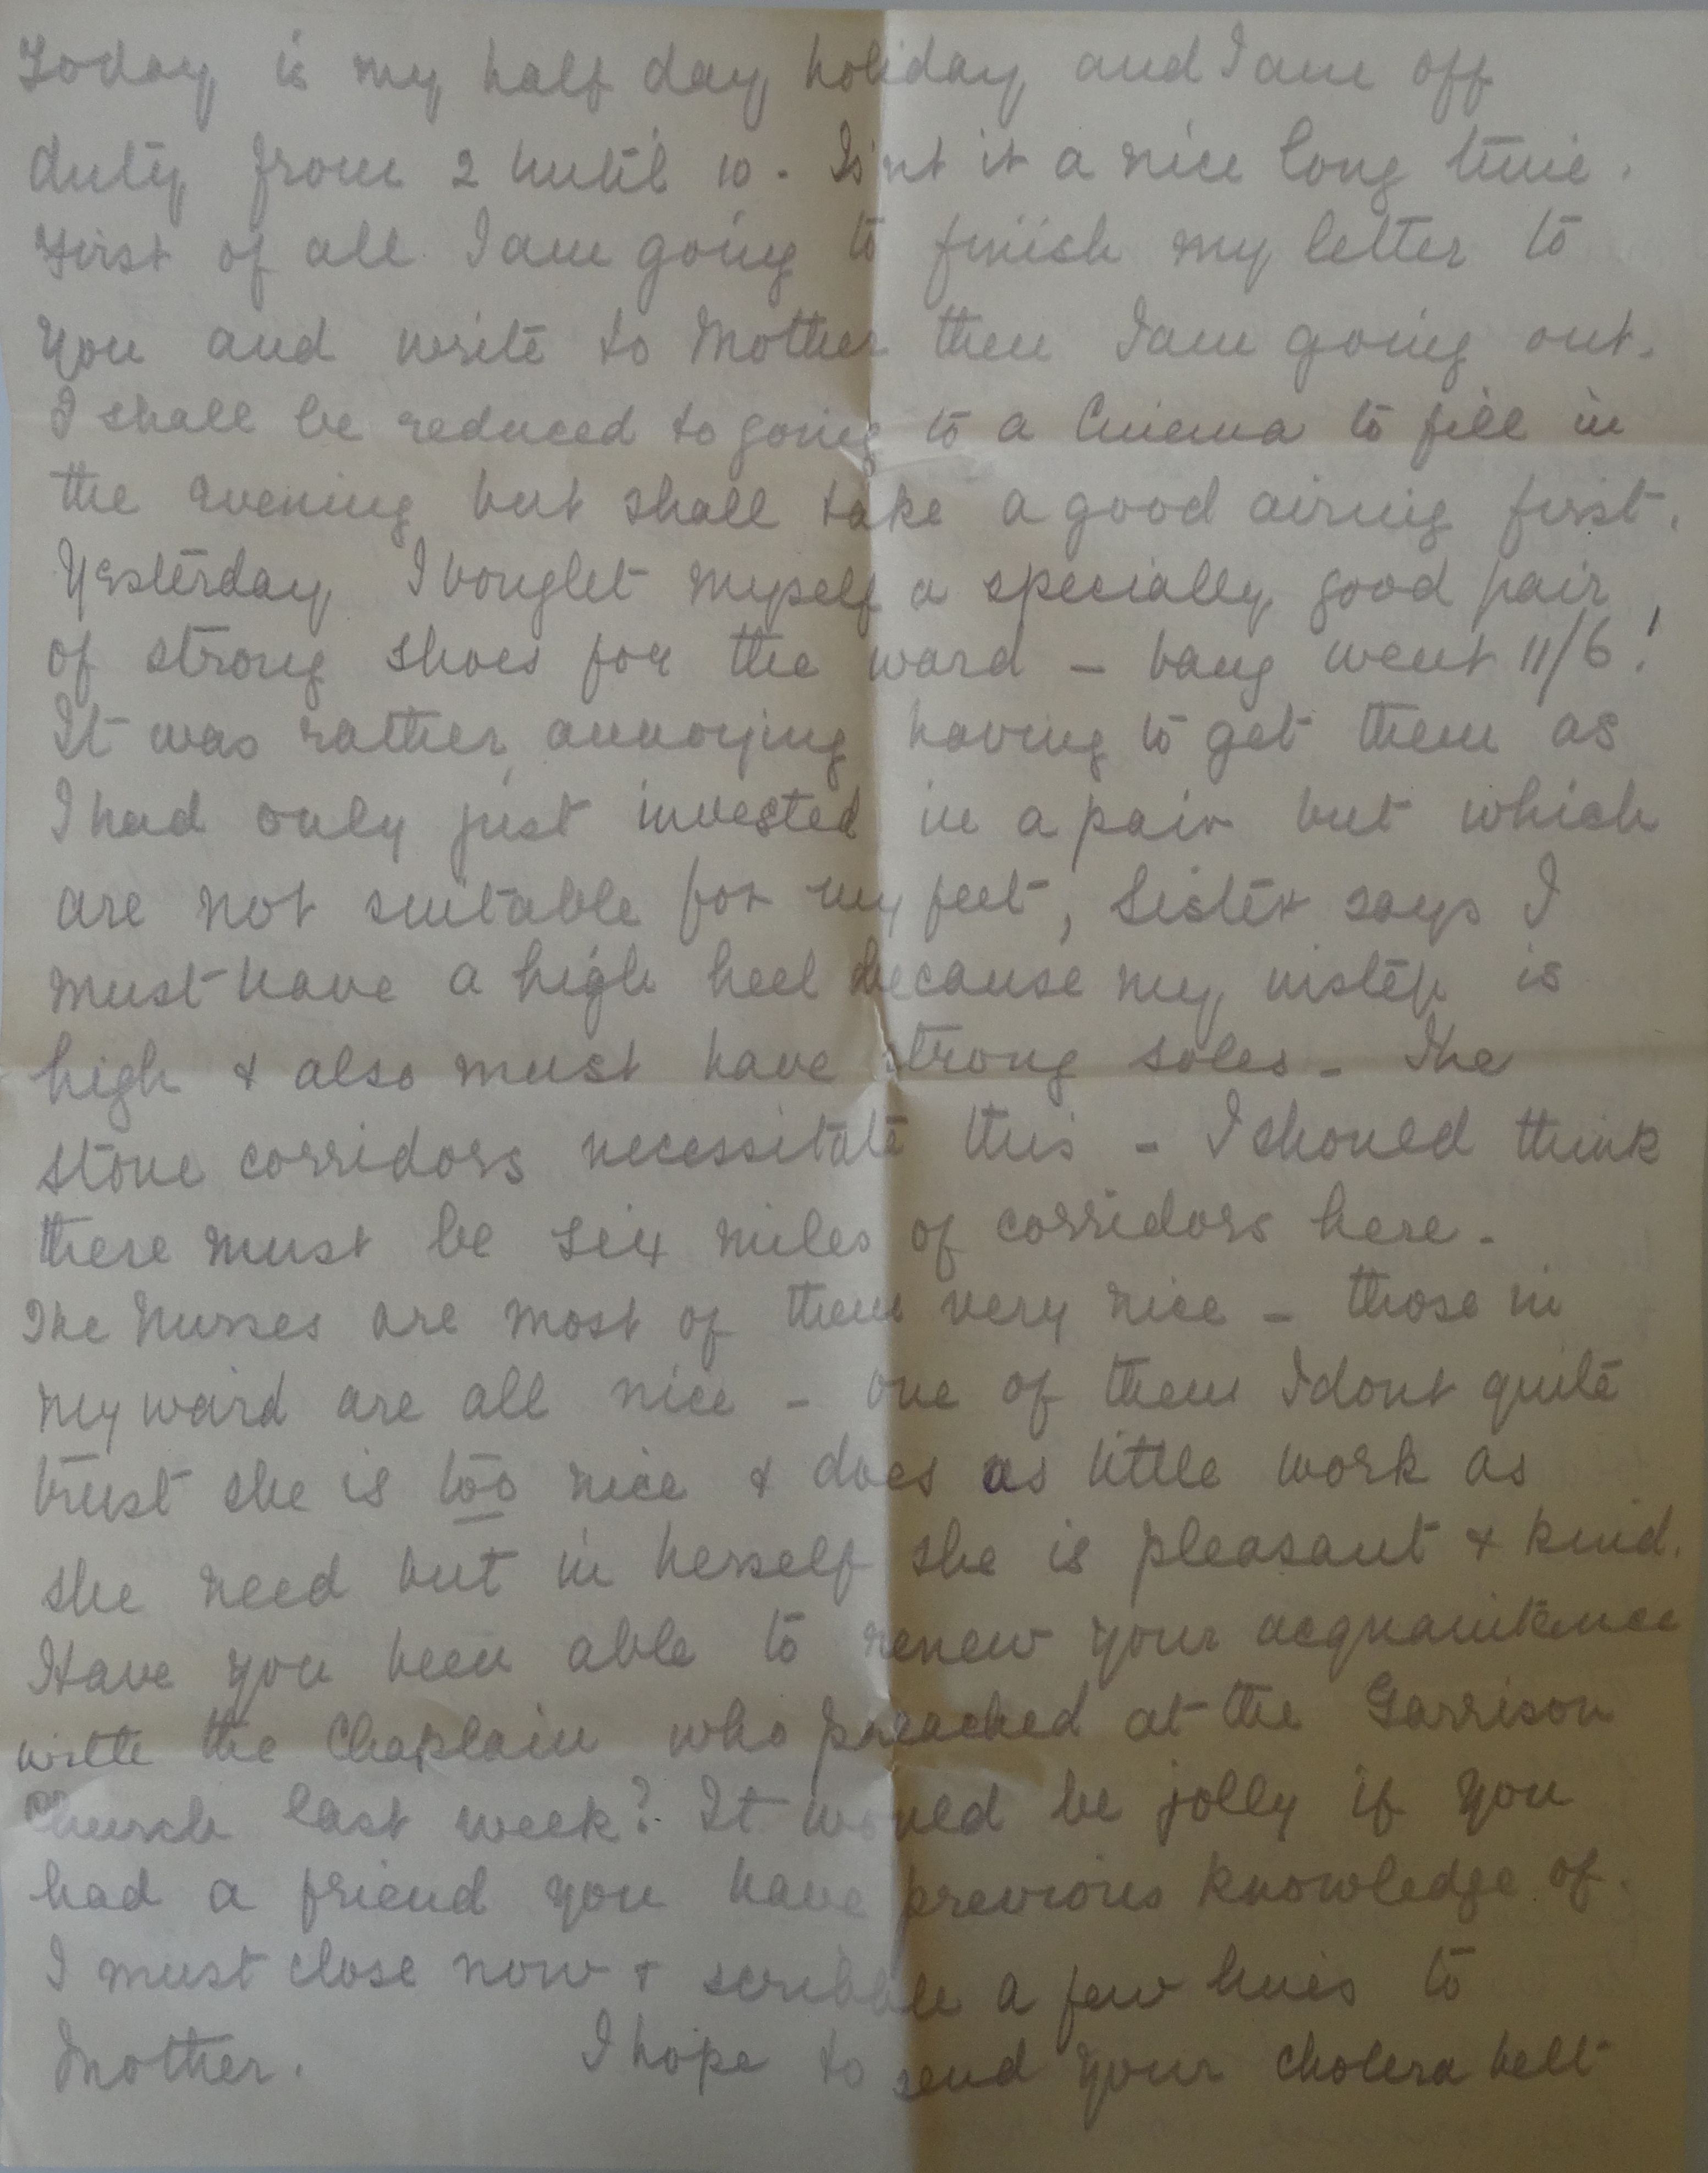 Today is my half day holiday and I am off
duty from 2 until 10 - Is'nt it a nice long time.
First of all I am going to finish my letter to
you and write to Mother then I am going out.
I shall be reduced to going to a Cinema to fill in
the evening but shall take a good airing first.
Yesterday I bought myself a specially good pair
of strong shoes for the ward - bang went 11/6!
It was rather annoying having to get them as
I had only just invested in a pair but which
are not suitable for my feet, Sister says I
must have a high heel because my instep is
high & also must have strong soles - The
stone corridors necessitate this - I should think
there must be six miles of corridors here -
The Nurses are most of them very nice - those in
my ward are all nice - one of them I dont quite
trust she is too nice & does as little work as
she need but in herself she is pleasant & kind.
Have you been able to renew your acquaintence
with the Chaplain who preached at the Garrison
Church last week? It would be jolly if you
had a friend you have previous knowledge of.
I must close now & scribble a few lines to
Mother. I hope to send your cholera belt